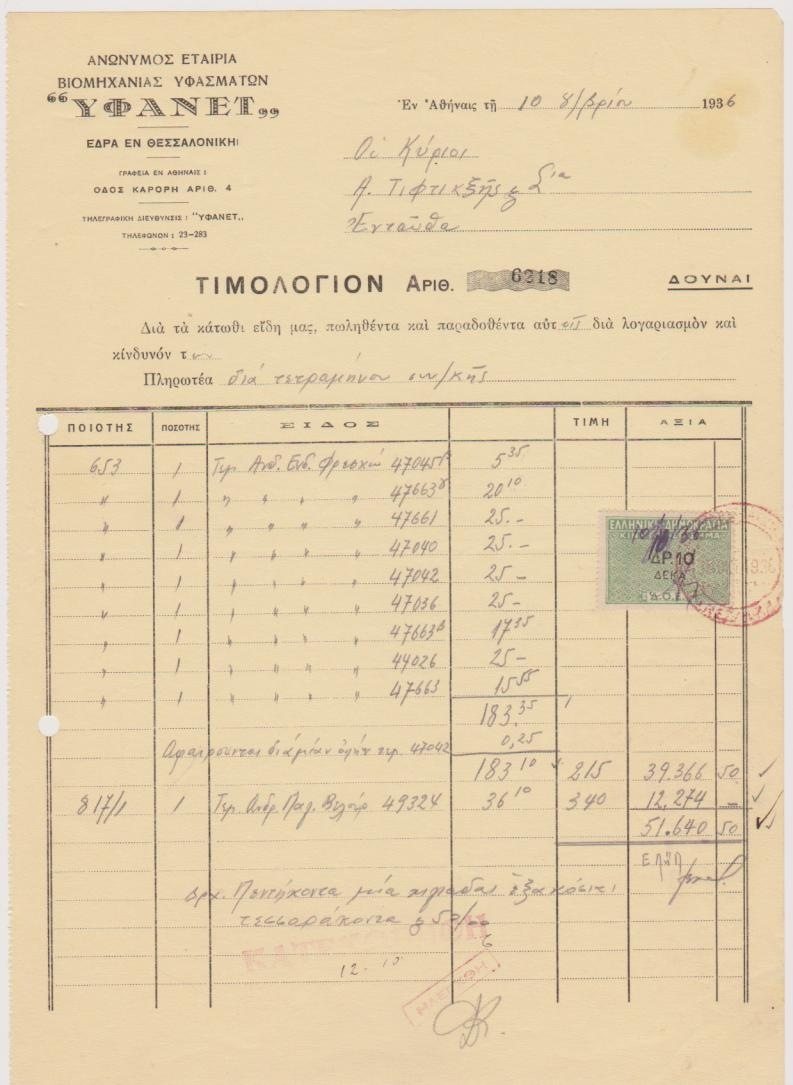 ΑΝΩΝΥΜΟΣ ΕΤΑΙΡΙΑ
ΒΙΟΜΗΧΑΝΙΑΣ ΥΦΑΣΜΑΤΩΝ
“ΥΦΑΝΕΤ„
ΕΔΡΑ ΕΝ ΘΕΣΣΑΛΟΝΙΚΗι
ΓΡΑΦΕΙΑ ΕΝ ΑΘΗΝΑΙΣ :
ΟΔΟΣ ΚΑΡΟΡΗ ΑΡΙΘ. 4
ΤΗΛΕΓΡΑΦΙΚΗ ΔΙΕΥΘΥΝΣΙΣ : "ΥΦΑΝΕΤ„
ΤΗΛΕΦΩΝΟΝ : 23-283
Ἐν Ἀθήναις τῇ 10 8/βρίου 1936
Οἱ Κύριοι
Α. Τιφτικξῆς & Σία
Ἐνταῦθα
ΤΙΜΟΛΟΓΙΟΝ ΑΡΙΘ. 6218
ΔΟΥΝΑΙ
Διὰ τὰ κάτωθι εἴδη μας, πωληθέντα καὶ παραδοθέντα αὐτοῖς διὰ λογαριασμὸν καὶ
κίνδυνόν των
Πληρωτέα διὰ τετραμήνου συν/κῆς
ΠΟΙΟΤΗΣ ΠΟΣΟΤΗΣ ΕΙΔΟΣ ΤΙΜΗ ΑΞΙΑ
653 1 Τεμ. Ανδ. Ενδ. Φρεσκώ 47045β 5 35
〃 1 〃 〃 〃 〃 47663γ 20 10
〃 1 〃 〃 〃 〃 47661 25.-
〃 1 〃 〃 〃 〃 47040 25.-
〃 1 〃 〃 〃 〃 47042 25-
〃 1 〃 〃 〃 〃 47036 25-
〃 1 〃 〃 〃 〃 47663β 17 35
〃 1 〃 〃 〃 〃 44026 25-
〃 1 〃 〃 〃 〃 47663 15 55
183.35
Αφαιροῦνται διὰ μίαν ὀπὴν τεμ. 47042 0,25
183 10 215 39.366 50
817/1 1 Τεμ. Ανδρ. Παλ. Βελούρ 49324 36 10 340 12.274 -
51.640 50
ΕΛΛΗΝΙΚΗ ΔΗΜΟΚΡΑΤΙΑ
10/8/36
ΔΡ. 10
ΔΕΚΑ
Δ.Ο.Ε.
1936
Δρχ. Πεντήκοντα μία χιλιάδαι ἑξακόσιαι
τεσσαράκοντα & 50/
12. 10
ΗΛΕΓΧΘΗ